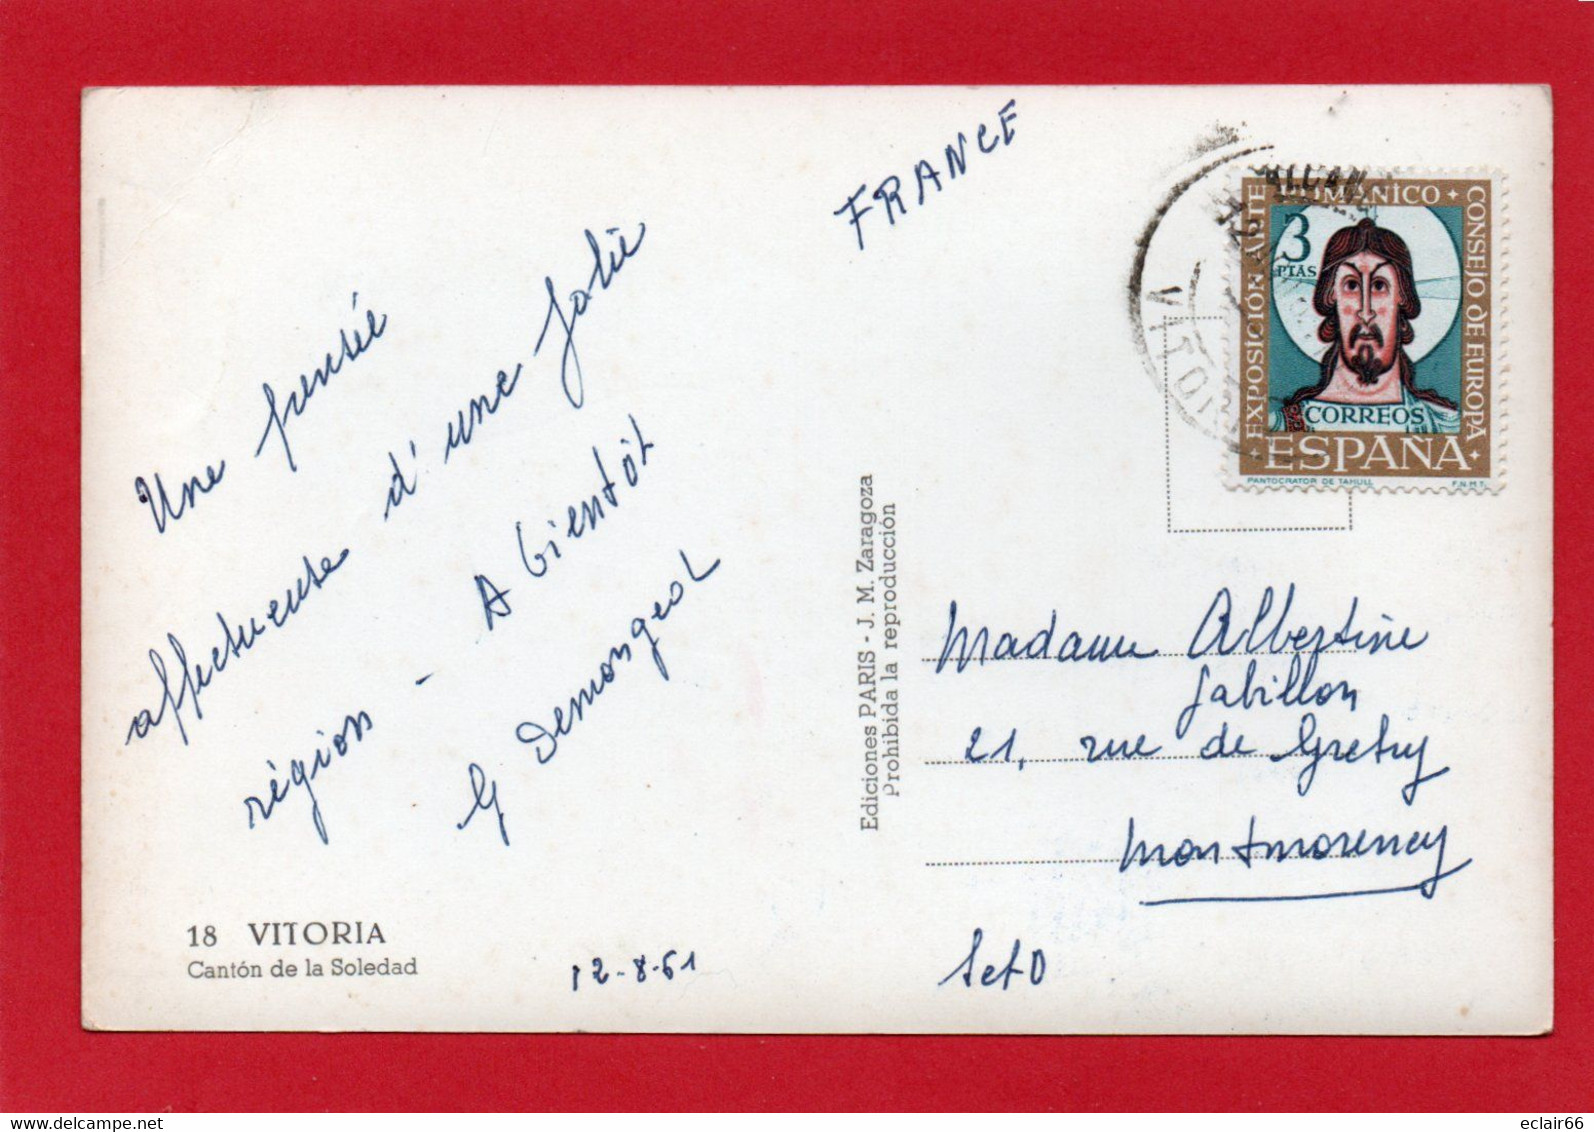 Une pensée
affectueuse d'une jolie
région - A bientôt
G Demongeot
18 VITORIA
Cantón de la Soledad
12-8-61
Ediciones PARIS - J. M. Zaragoza
Prohibida la reproducción
FRANCE
VITORIA
EXPOSICIÓN ARTE ROMÁNICO + CONSEJO DE EUROPA
3
PTAS
CORREOS
ESPAÑA
PANTOCRATOR DE TAHULL F.N.M.T.
Madame Albertine
Gabillon
21, rue de Gretry
Montmorency
SetO
eclair66